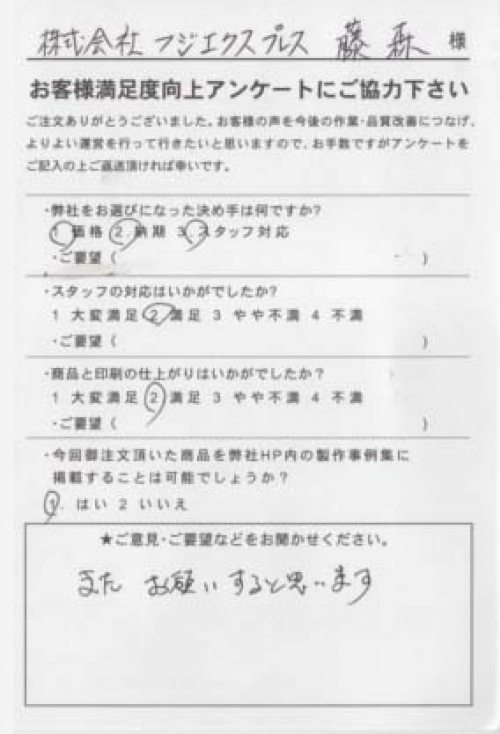 株式会社 フジエクスプレス 藤森 様
お客様満足度向上アンケートにご協力下さい
ご注文ありがとうございました。お客様の声を今後の作業・品質改善につなげ、
よりよい運営を行って行きたいと思いますので、お手数ですがアンケートを
ご記入の上ご返送頂ければ幸いです。
・弊社をお選びになった決め手は何ですか?
1 価格 2 納期 3 スタッフ対応
・ご要望 ( )
・スタッフの対応はいかがでしたか?
1 大変満足 2 満足 3 やや不満 4 不満
・ご要望 ( )
・商品と印刷の仕上がりはいかがでしたか?
1 大変満足 2 満足 3 やや不満 4 不満
・ご要望 ( )
・今回御注文頂いた商品を弊社HP内の製作事例集に
掲載することは可能でしょうか?
1. はい 2 いいえ
★ご意見・ご要望などをお聞かせください。
また お願いすると思います